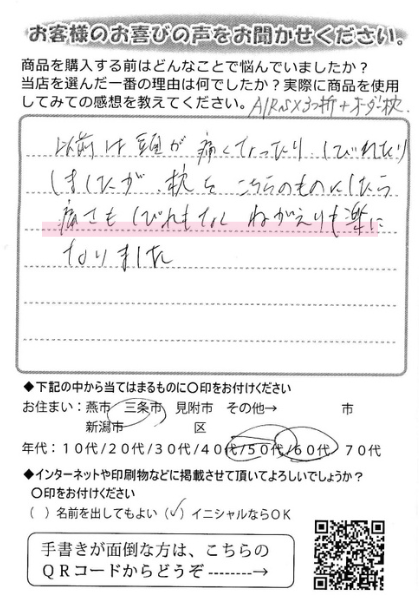 お客様のお喜びの声をお聞かせください。
商品を購入する前はどんなことで悩んでいましたか？
当店を選んだ一番の理由は何でしたか？実際に商品を使用
してみての感想を教えてください。AIRSX3つ折+オーダー枕
以前は頭が痛くなったり しびれたり
しましたが、枕をこちらのものにしたら
痛さもしびれもなく ねがえりも楽に
なりました
◆下記の中から当てはまるものに〇印をお付けください
お住まい：燕市 三条市 見附市 その他→ 市
新潟市 区
年代：１０代/２０代/３０代/４０代/５０代/６０代/ ７０代
◆インターネットや印刷物などに掲載させて頂いてよろしいでしょうか？
〇印をお付けください
( ) 名前を出してもよい (✓) イニシャルならＯＫ
手書きが面倒な方は、こちらの
ＱＲコードからどうぞ--------→